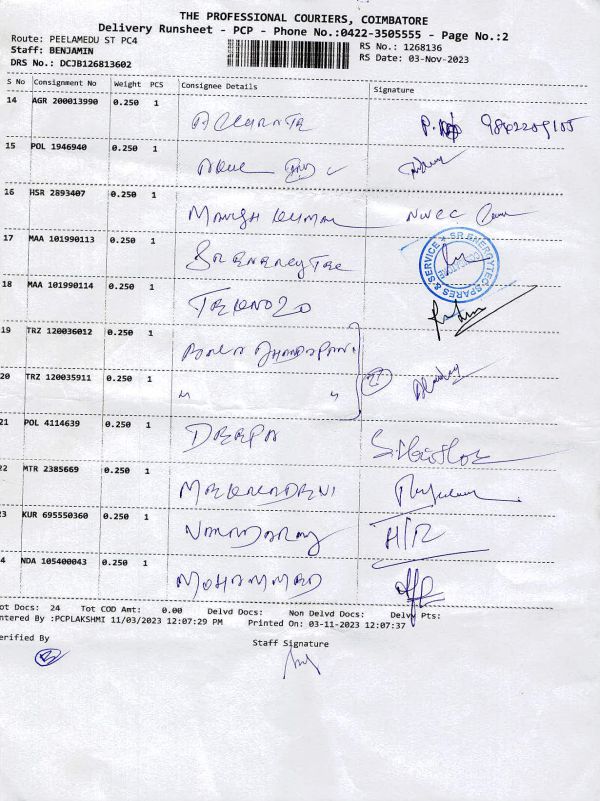 THE PROFESSIONAL COURIERS, COIMBATORE
Delivery Runsheet - PCP - Phone No.:0422-3505555 - Page No.:2
Route: PEELAMEDU ST PC4
RS No.: 1268136
Staff: BENJAMIN
RS Date: 03-Nov-2023
DRS No.: DCJB126813602
S No Consignment No Weight PCS Consignee Details Signature
14 AGR 200013990 0.250 1
15 POL 1946940 0.250 1
16 HSR 2893407 0.250 1 MANISH KUMAR
17 MAA 101990113 0.250 1
SR ENERGYTEC SPARES & SERVICE
18 MAA 101990114 0.250 1
19 TRZ 120036012 0.250 1
20 TRZ 120035911 0.250 1 " "
21 POL 4114639 0.250 1 DEEPA
22 MTR 2385669 0.250 1
23 KUR 695550360 0.250 1 H/R
24 NDA 105400043 0.250 1 MOHAMMAD
ot Docs: 24 Tot COD Amt: 0.00 Delvd Docs: Non Delvd Docs: Delvy Pts:
ntered By :PCPLAKSHMI 11/03/2023 12:07:29 PM Printed On: 03-11-2023 12:07:37
erified By Staff Signature